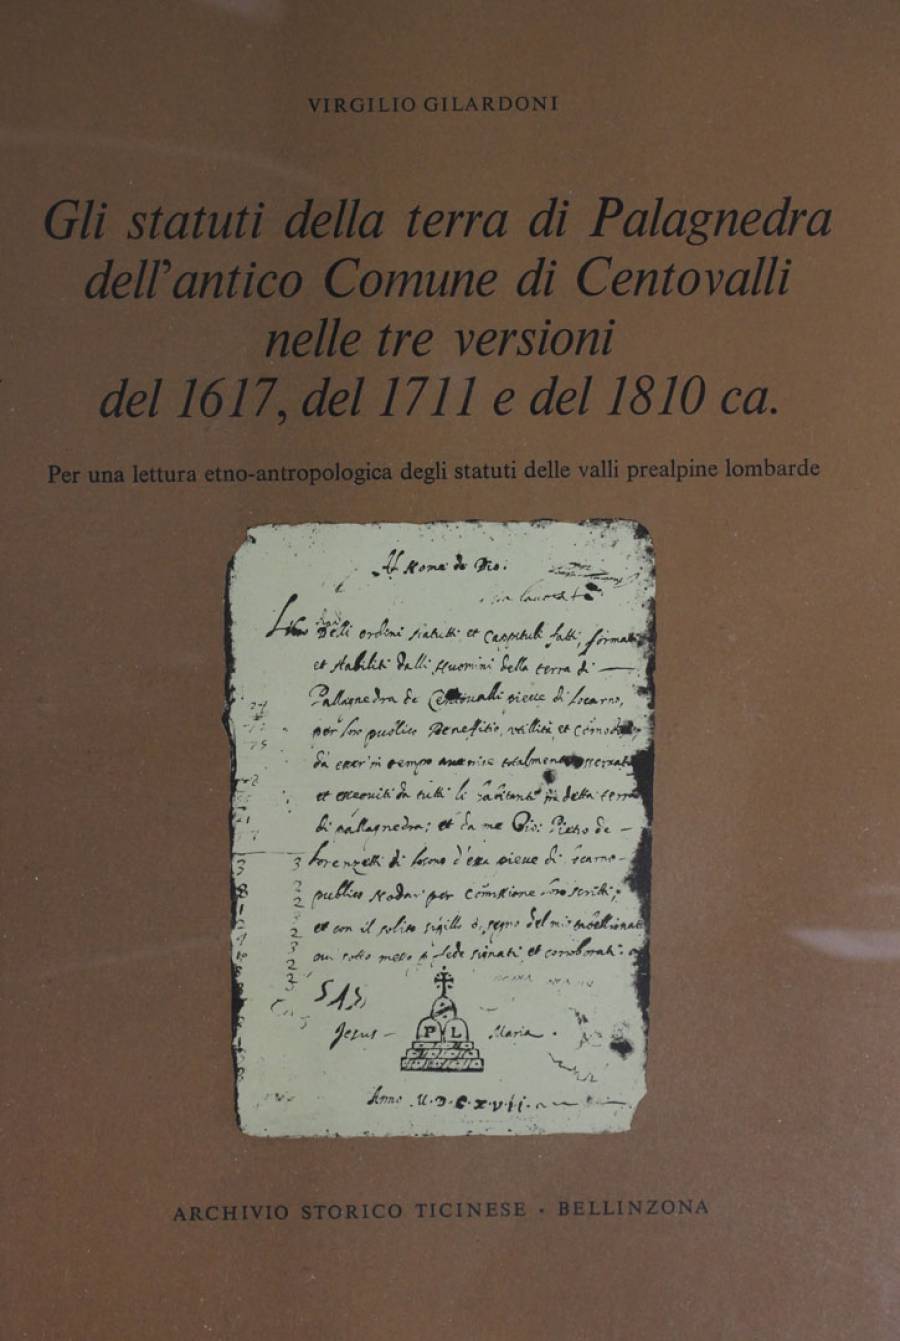 VIRGILIO GILARDONI
Gli statuti della terra di Palagnedra
dell'antico Comune di Centovalli
nelle tre versioni
del 1617, del 1711 e del 1810 ca.
Per una lettura etno-antropologica degli statuti delle valli prealpine lombarde
Al Nome de Dio.
Delli ordini statutti et Cappituli fatti, formati
et stabiliti dalli Huomini della terra di
Pallagnedra de Centovalli pieve di Locarno,
per loro publico Benefitio, utillità, et Comodo
da esser in tempo totalmente osservati
et exequiti da tutti li habitanti in detta terra
di pallagnedra; et da me Gio: Pietro de
Lorenzetti di pieve di Locarno
publico Nodar per Comissione loro scritti;
et con il solito sigillo ò segno del mio tabellionato
qui sotto messo à fede signati et corroborati.
Jesus P L Maria
Anno M.D.C.X.VII.
ARCHIVIO STORICO TICINESE · BELLINZONA